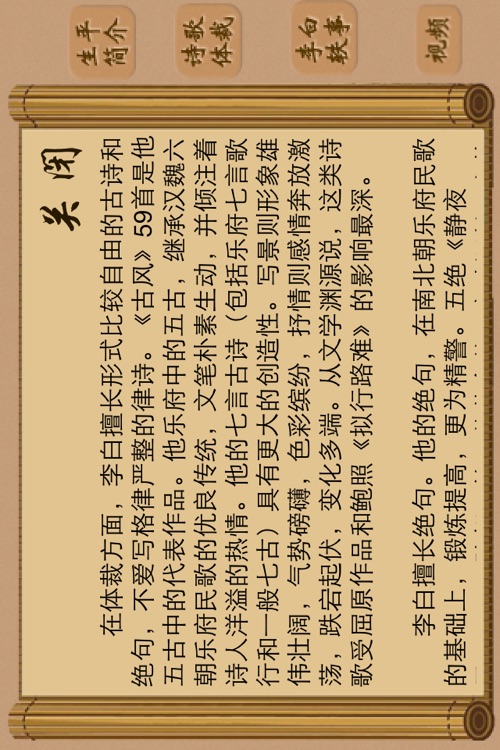 生平
简介
诗歌
体裁
李白
轶事
视频
关闭
在体裁方面，李白擅长形式比较自由的古诗和
绝句，不爱写格律严整的律诗。《古风》59首是他
五古中的代表作品。他乐府中的五古，继承汉魏六
朝乐府民歌的优良传统，文笔朴素生动，并倾注着
诗人洋溢的热情。他的七言古诗（包括乐府七言歌
行和一般七古）具有更大的创造性。写景则形象雄
伟壮阔，气势磅礴，色彩缤纷，抒情则感情奔放激
荡，跌宕起伏，变化多端。从文学渊源说，这类诗
歌受屈原作品和鲍照《拟行路难》的影响最深。
李白擅长绝句。他的绝句，在南北朝乐府民歌
的基础上，锻炼提高，更为精警。五绝《静夜